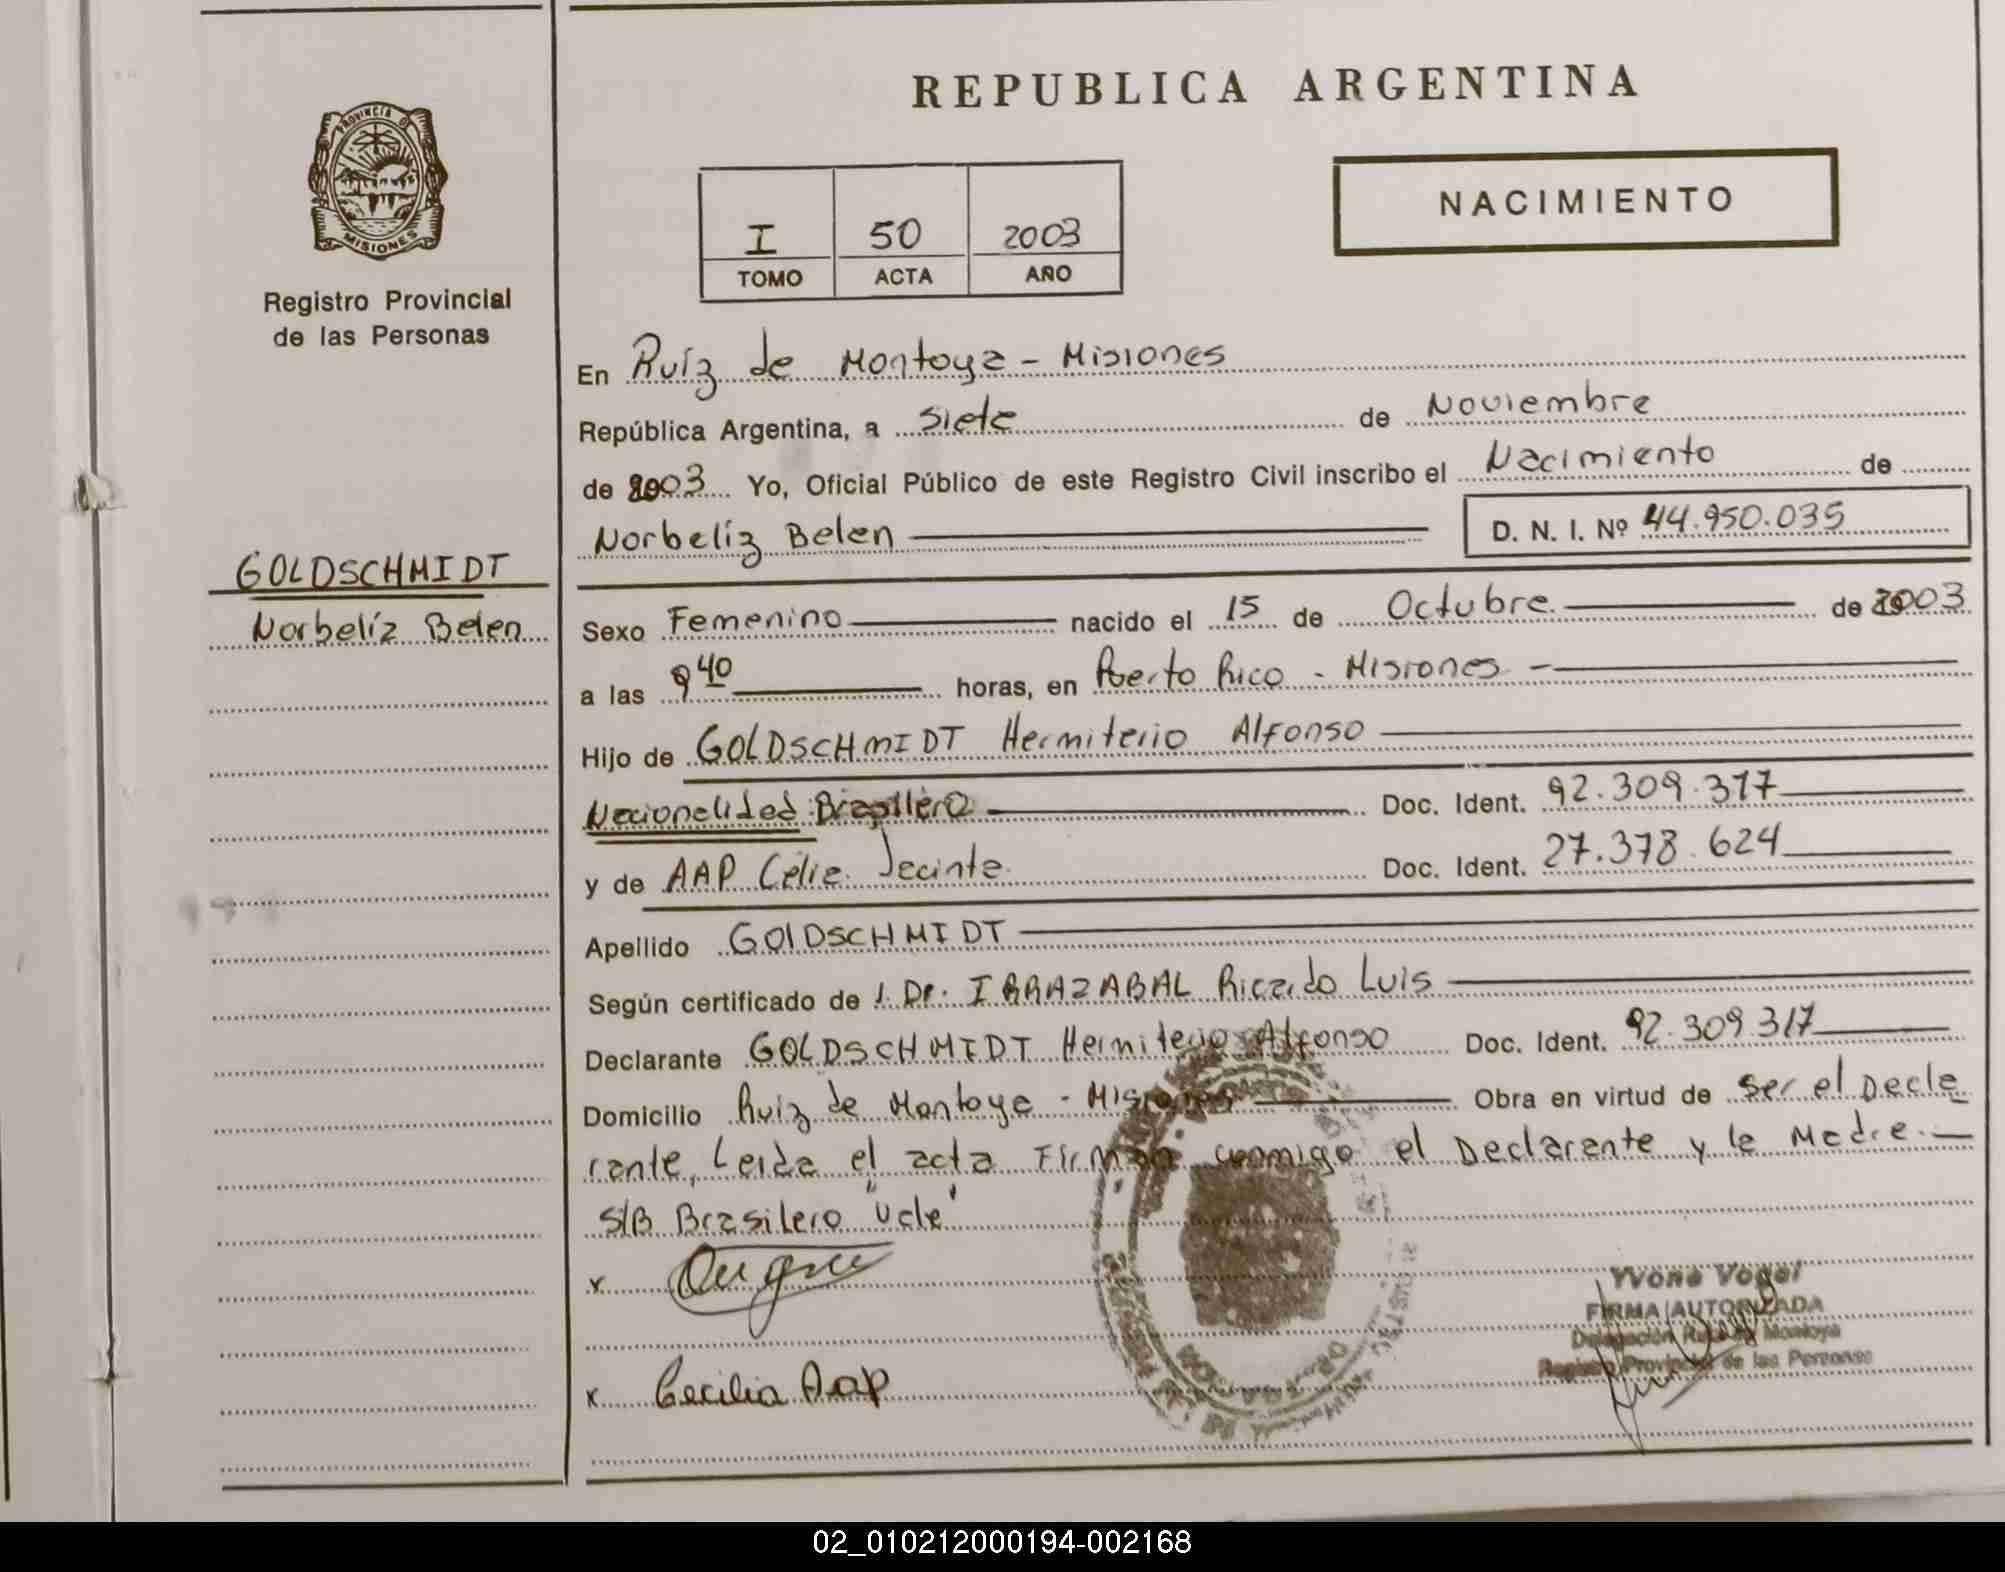 REPUBLICA ARGENTINA
PROVINCIA DE
MISIONES
Registro Provincial
de las Personas
NACIMIENTO
I 50 2003
TOMO ACTA AÑO
En Ruíz de Montoya - Misiones
República Argentina, a Siete de Noviembre
de 2003 Yo, Oficial Público de este Registro Civil inscribo el Nacimiento de
Norbelíz Belen D. N. I. Nº 44.950.035
GOLDSCHMIDT
Norbelíz Belen
Sexo Femenino nacido el 15 de Octubre de 2003
a las 9 40 horas, en Puerto Rico - Misiones -
Hijo de GOLDSCHMIDT Hermiterio Alfonso
Nacionalidad: Brasilera Doc. Ident. 92.309.317
y de AAP Célia Jacinta Doc. Ident. 27.378.624
Apellido GOLDSCHMIDT
Según certificado de Dr. IRRAZABAL Ricardo Luis
Declarante GOLDSCHMIDT Hermiterio Alfonso Doc. Ident. 92.309.317
Domicilio Ruíz de Montoya - Misiones Obra en virtud de ser el Decla
rante, Leída el acta Firman conmigo el Declarante y la Madre.
S/B Brasilero "Vale"
x
x Cecilia Aap
Yvone Vogel
FIRMA AUTORIZADA
Delegación Ruiz de Montoya
Registro Provincial de las Personas
02_010212000194-002168